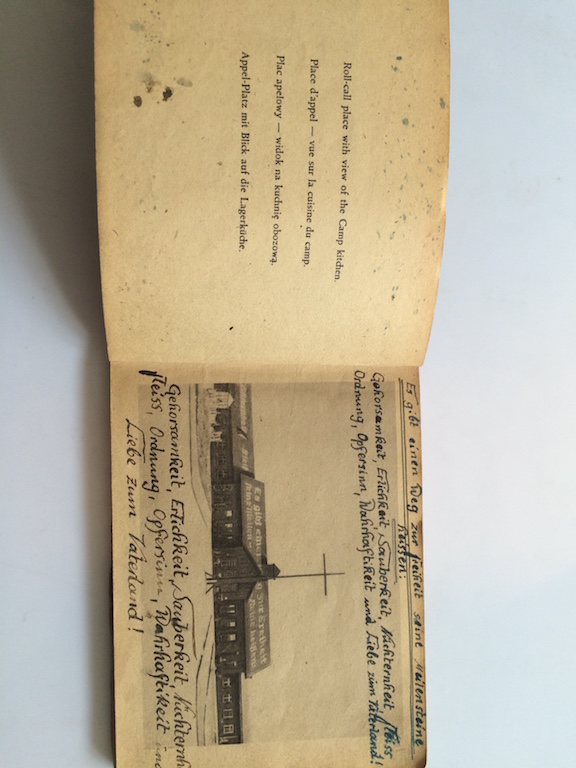 Roll-call place with view of the Camp kitchen.
Place d'appel — vue sur la cuisine du camp.
Plac apelowy — widok na kuchnię obozową.
Appel-Platz mit Blick auf die Lagerküche.
Es gibt einen Weg zur freiheit seine meilensteine
heissen:
Gehorsamkeit, Erlichkeit, Sauberkeit, Nüchternheit, fleiss
Ordnung, Opfersinn, Wahrhaftigkeit und Liebe zum Vaterland!
Es gibt einen zur Freiheit
Gehorsamkeit, Erlichkeit, Sauberkeit, Nüchternh
fleiss, Ordnung, Opfersinn, Wahrhaftigkeit und
Liebe zum Vaterland!